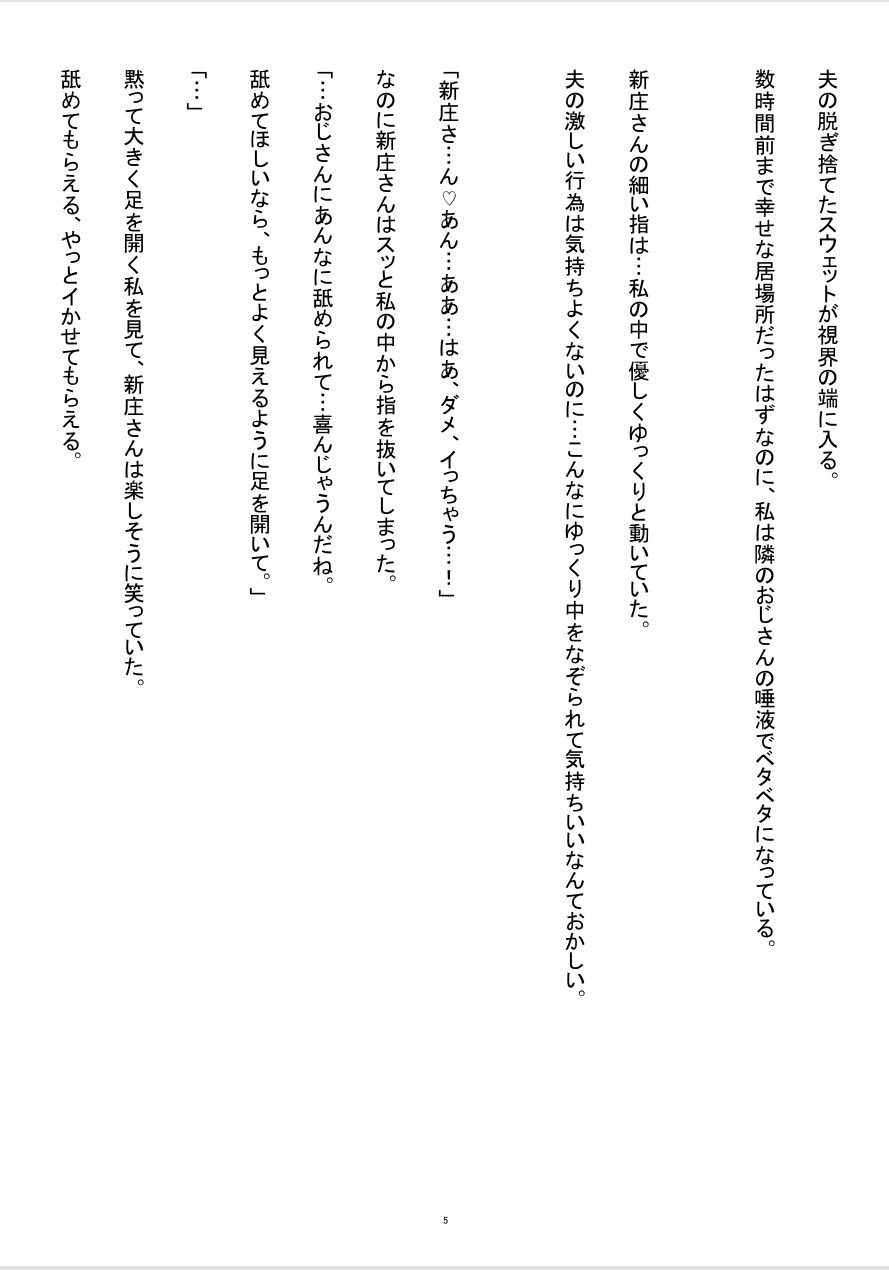 夫の脱ぎ捨てたスウェットが視界の端に入る。
数時間前まで幸せな居場所だったはずなのに、私は隣のおじさんの唾液でベタベタになっている。
新庄さんの細い指は…私の中で優しくゆっくりと動いていた。
夫の激しい行為は気持ちよくないのに…こんなにゆっくり中をなぞられて気持ちいいなんておかしい。
「新庄さ…ん♡あん…ああ…はあ、ダメ、イっちゃう…！」
なのに新庄さんはスッと私の中から指を抜いてしまった。
「…おじさんにあんなに舐められて…喜んじゃうんだね。
舐めてほしいなら、もっとよく見えるように足を開いて。」
「…」
黙って大きく足を開く私を見て、新庄さんは楽しそうに笑っていた。
舐めてもらえる、やっとイかせてもらえる。
5